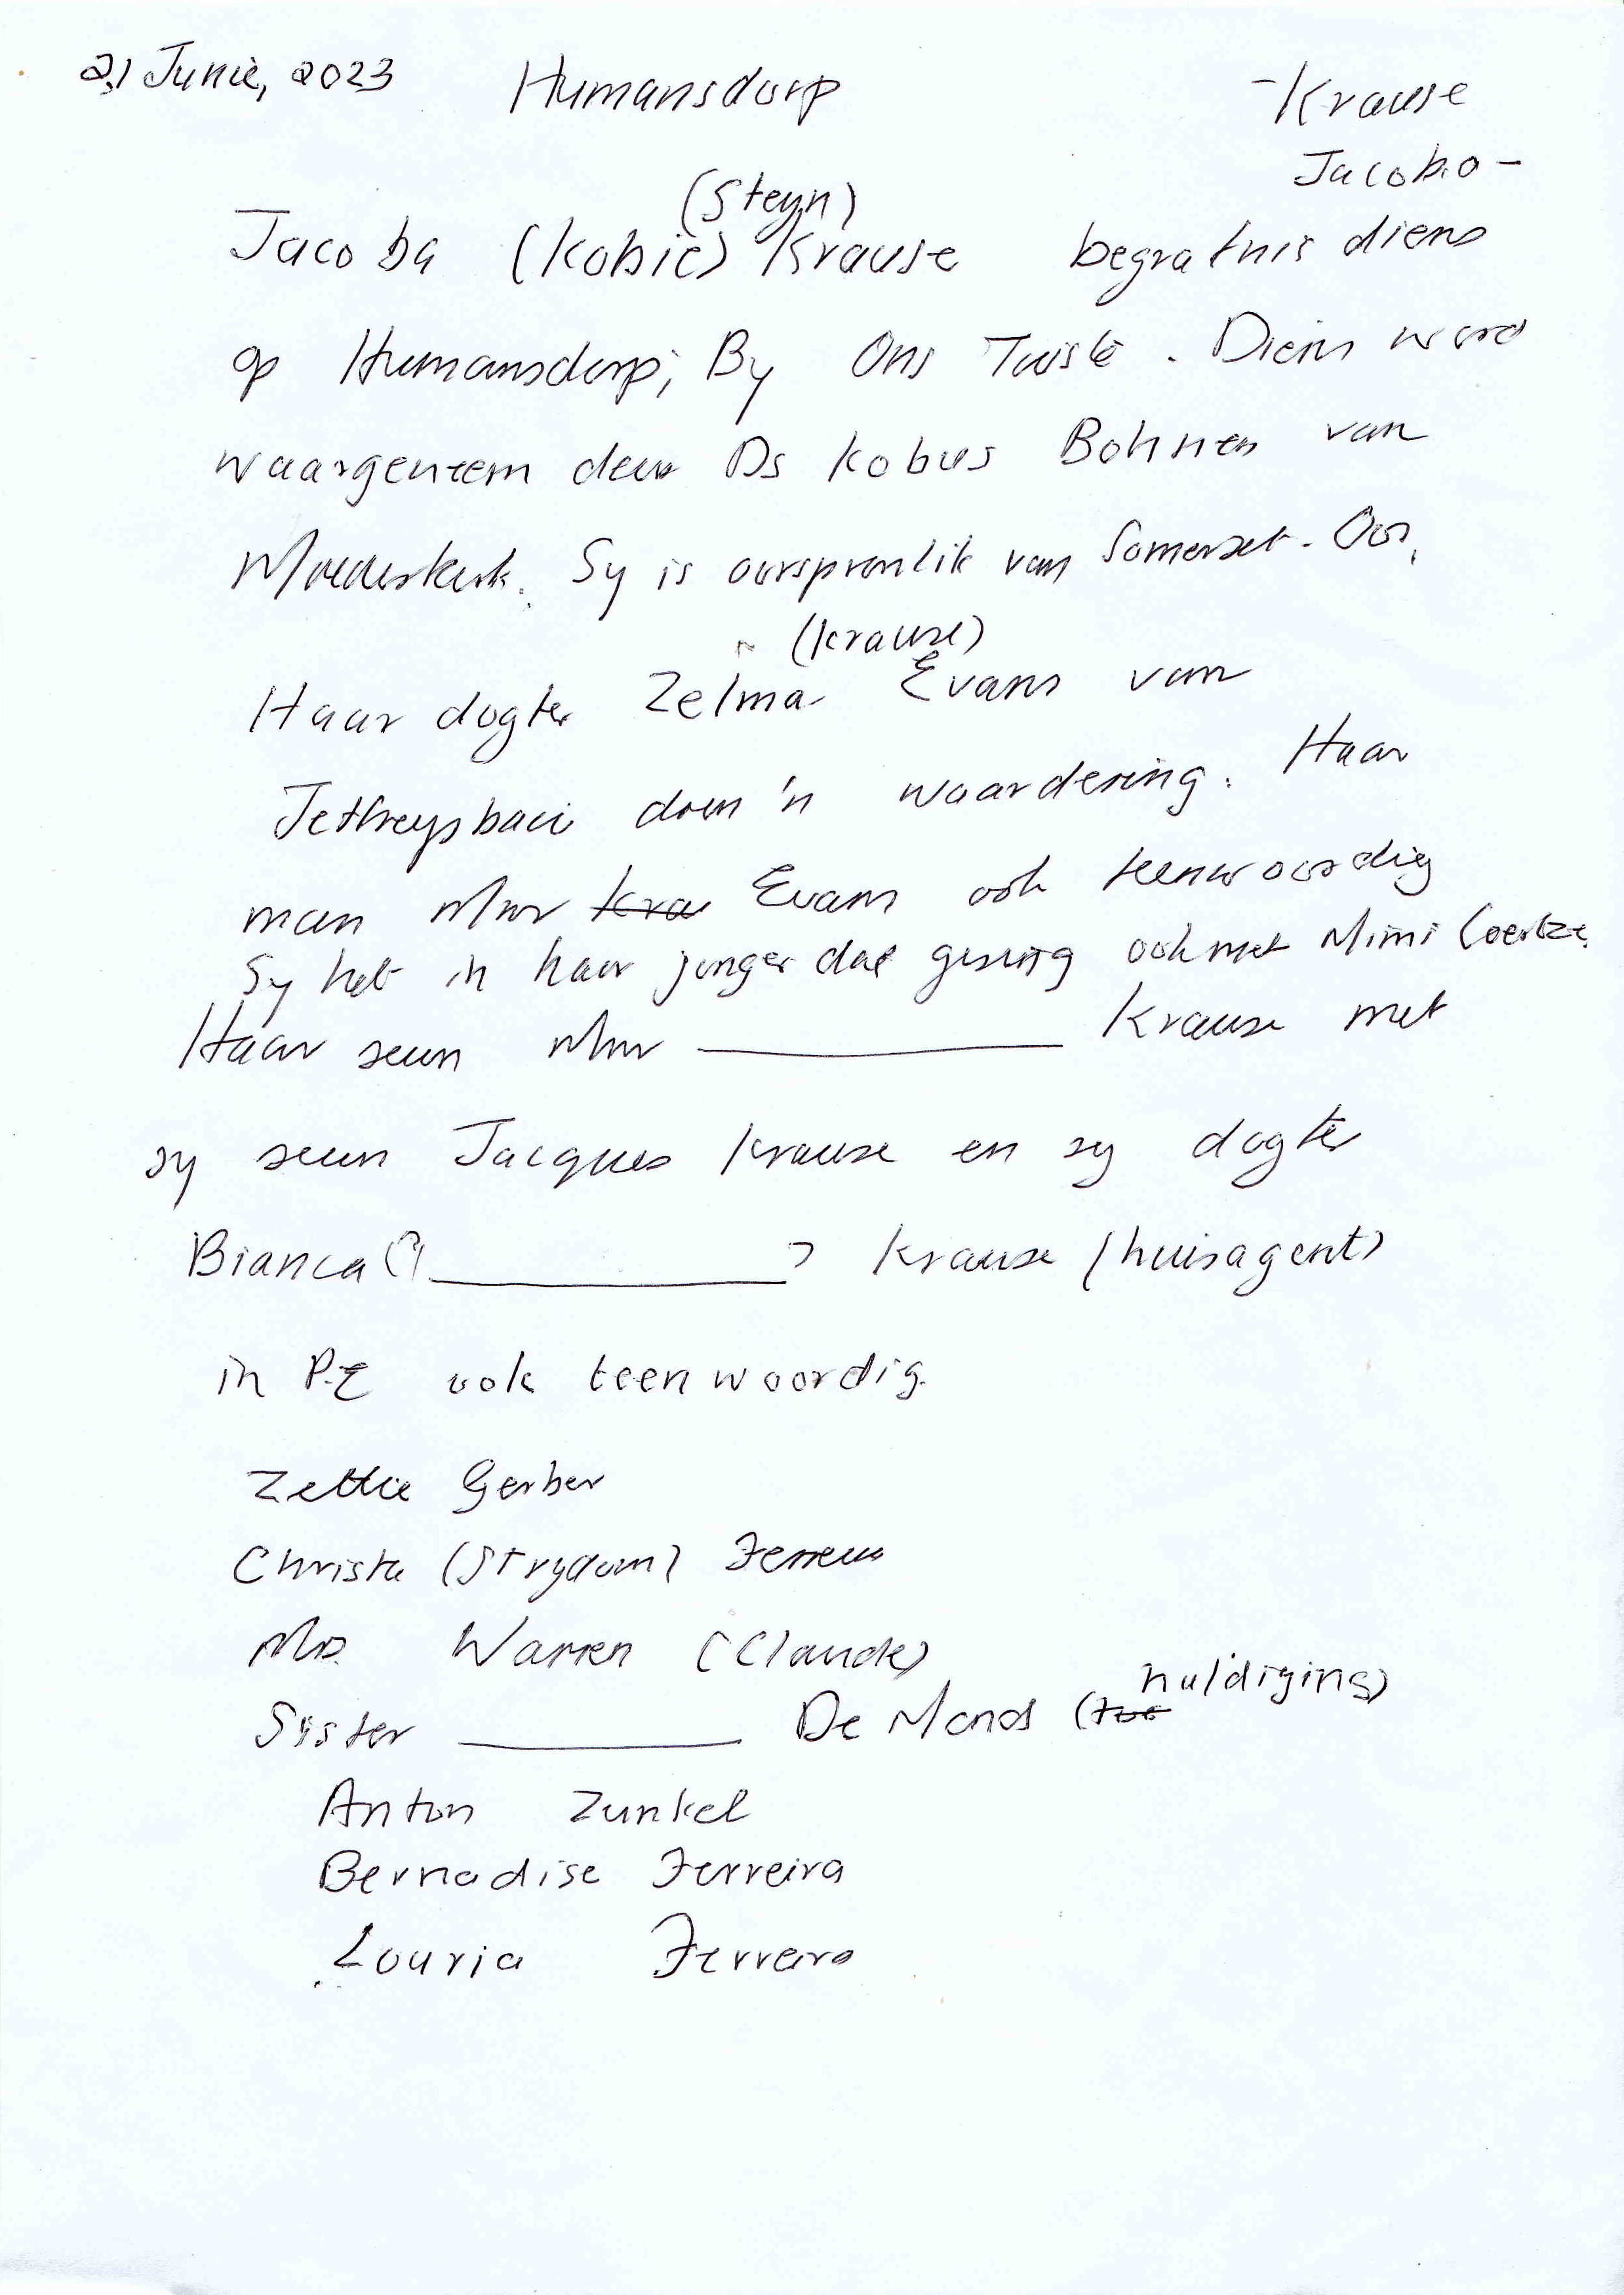 21 Junie, 2023 Humansdorp -Krause
Jacoba-
(Steyn)
Jacoba (Kobie) Krause begrafnis diens
op Humansdorp, By Ons Tuiste. Diens word
waargeneem deur Ds Kobus Bohnen van
Moederkerk. Sy is oorspronlik van Somerset-Oos.
(Krause)
Haar dogter Zelma Evans van
Jeffreysbaai doen 'n waardering. Haar
man Mnr Kra Evans ook teenwoordig
Sy het in haar jonger dae gesing ook met Mimi Coertze.
Haar seun Mnr ________ Krause met
sy seun Jacques Krause en sy dogter
Bianca (?) ________) Krause (huisagent)
in P.E ook teenwoordig.
Zettie Gerber
Christa (Strydom) Ferreira
Warren (Claude)
huldiging)
Sister ________ De Mond (
Anton Zunkel
Bernadise Ferreira
Louria Ferreira